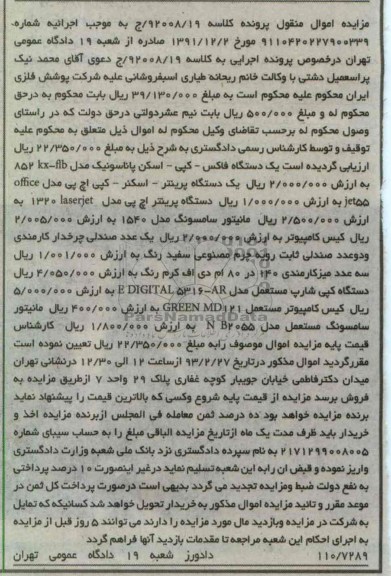 مزایده اموال منقول پرونده کلاسه ۹۲۰۰۸/۱۹/ج به موجب اجرائیه شماره،
۹۱۱۰۴۲۰۲۲۷۹۰۰۳۳۹ مورخ ۱۳۹۱/۱۲/۲ صادره از شعبه ۱۹ دادگاه عمومی
تهران درخصوص پرونده اجرایی به کلاسه ۹۲۰۰۸/۱۹/ج دعوی آقای محمد نیک
پراسمعیل دشتی با وکالت خانم ریحانه طیاری اسبفروشانی علیه شرکت پوشش فلزی
ایران محکوم علیه محکوم است به مبلغ ۳۹/۱۳۰/۰۰۰ ریال بابت محکوم به درحق
محکوم له و مبلغ ۵۰۰/۰۰۰ ریال بابت نیم عشردولتی درحق دولت که در راستای
وصول محکوم له برحسب تقاضای وکیل محکوم له اموال ذیل متعلق به محکوم علیه
توقیف و توسط کارشناس رسمی دادگستری به شرح ذیل به مبلغ ۲۲/۳۵۰/۰۰۰ ریال
ارزیابی گردیده است یک دستگاه فاکس - کپی - اسکن پاناسونیک مدل kx-flb ۸۵۲
به ارزش ۲/۰۰۰/۰۰۰ ریال یک دستگاه پرینتر - اسکنر - کپی اچ پی مدل office
jet55 به ارزش ۱/۰۰۰/۰۰۰ ریال دستگاه پرینتر اچ پی مدل laserjet ۱۳۲۰ به
ارزش ۲/۵۰۰/۰۰۰ ریال مانیتور سامسونگ مدل ۱۵۴۰ به ارزش ۲/۰۰۵/۰۰۰
ریال کیس کامپیوتر به ارزش ۲/۰۰۰/۰۰۰ ریال یک عدد صندلی چرخدار کارمندی
ودوعدد صندلی ثابت رویه چرم مصنوعی سفید رنگ به ارزش ۱/۰۰۱/۰۰۰ ریال
سه عدد میزکارمندی ۱۴۰ در ۸۰ ام دی اف کرم رنگ به ارزش ۴/۰۵۰/۰۰۰ ریال
دستگاه کپی شارپ مستعمل مدل E DIGITAL ۵۳۱۶-AR به ارزش ۵/۰۰۰/۰۰۰
ریال کیس کامپیوتر مستعمل GREEN MD۱۲۱ به ارزش ۴۰۰/۰۰۰ ریال مانیتور
سامسونگ مستعمل مدل N B۲۰۵۵ به ارزش ۱/۸۰۰/۰۰۰ ریال کارشناس
قیمت پایه مزایده اموال موصوف رابه مبلغ ۲۲/۳۵۰/۰۰۰ ریال تعیین نموده است
مقررگردید اموال مذکور درتاریخ ۹۳/۲/۲۷ ازساعت ۱۲ الی ۱۲/۳۰ درنشانی تهران
میدان دکترفاطمی خیابان جویبار کوچه غفاری پلاک ۲۹ واحد ۷ ازطریق مزایده به
فروش برسد مزایده از قیمت پایه شروع وکسی که بالاترین قیمت را پیشنهاد نماید
برنده مزایده خواهد بود ده درصد ثمن معامله فی المجلس ازبرنده مزایده اخذ و
خریدار باید ظرف مدت یک ماه ازتاریخ مزایده الباقی مبلغ را به حساب سیبای شماره
۲۱۷۱۲۹۹۰۰۸۰۰۵ به نام سپرده دادگستری نزد بانک ملی شعبه وزارت دادگستری
واریز نموده و قبض ان رابه این شعبه تسلیم نماید درغیر اینصورت ۱۰ درصد پرداختی
به نفع دولت ضبط ومزایده تجدید می گردد بدیهی است درصورت پرداخت کل ثمن در
موعد مقرر و تائید مزایده اموال مذکور به خریدار تحویل خواهد شد کسانیکه که تمایل
به شرکت در مزایده وبازدید مال مورد مزایده را دارند می توانند ۵ روز قبل از مزایده
به اجرای احکام این شعبه مراجعه تا مقدمات بازدید آنها فراهم گردد
۱۱۰/۷۲۸۹ دادورز شعبه ۱۹ دادگاه عمومی تهران
ParsNamadData